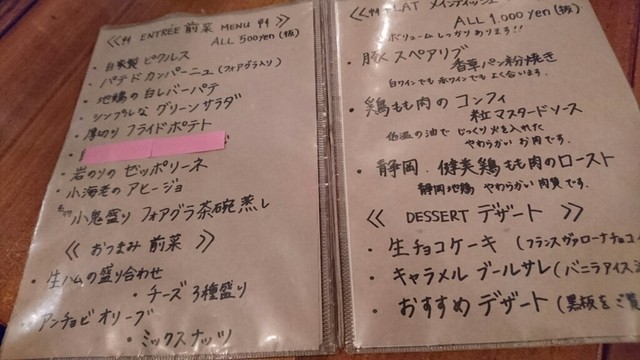 ENTRÉE 前菜 MENU
ALL 500yen (税)
・自家製 ピクルス
・パテド カンパーニュ (フォアグラ入り)
・地鶏の 白レバーパテ
・シンプルな グリーンサラダ
・厚切り フライドポテト
・岩のりの ゼッポリーネ
・小海老の アヒージョ
小鬼盛り フォアグラ 茶碗蒸し
≪ おつまみ 前菜 ≫
・生ハムの 盛り合わせ
・チーズ 3種盛り
・アンチョビ オリーブ
・ミックスナッツ
PLAT メインディッシュ
ALL 1,000yen (税)
ボリューム しっかり あります!!
・豚 スペアリブ
香草パン粉焼き
白ワインでも 赤ワインでも よく合います.
・鶏もも肉の コンフィ
粒マスタードソース
低温の油で じっくり 火を入れた
やわらかい お肉です.
・静岡. 健美鶏もも肉のロースト
静岡地鶏 やわらかい 肉質です.
≪ DESSERT デザート ≫
・生チョコケーキ (フランスヴァローナチョコ
・キャラメル ブールサレ (バニラアイス
・おすすめ デザート (黒板を ご覧